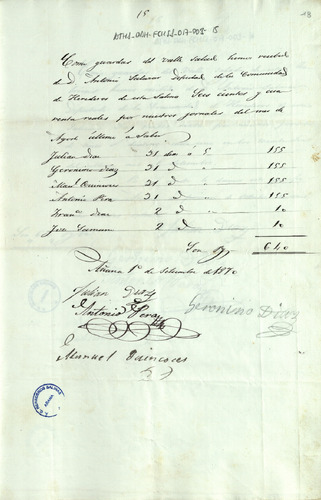 15
18
ATHA-DAH-FCILL-017-008-15
Como guardas del Valle Salado hemos recibido
de D. Antonio Salazar Diputado de la Comunidad
de Herederos de esta Salina Seis cientos y cua
renta reales por nuestros jornales del mes de
Agosto último a Saber
Julian Diaz 31 dias á 5 155
Geronimo Diaz 31 d " 155
Manl Quincoces 31 d " 155
Antonio Pera 31 d " 155
Franco Diaz 2 d " 10
Jose 2 d " 10
Son 640
Añana 1º de Setiembre de 1870
Julian Diaz
Antonio Pera
Geronimo Diaz
Manuel Quincoces
AÑANA